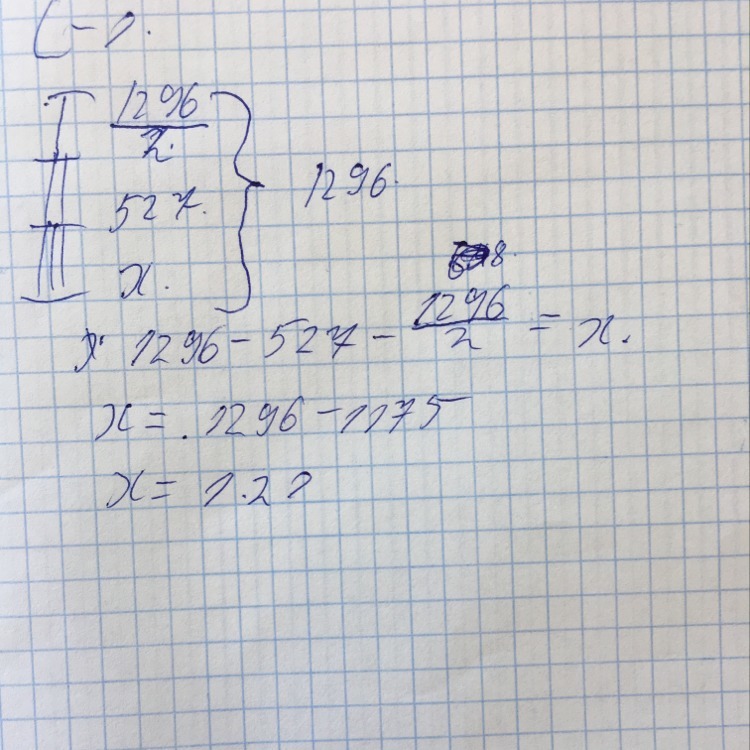 C-1.
I 1296/2
II 527. } 1296.
III x.
648
1296 - 527 - 1296/2 = x.
x = 1296 - 1175
x = 121